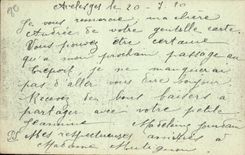 Avelesges le 20-7-10
Je vous remercie, ma chère
Andrée de votre gentille carte.
Vous pouvez être certaine
qu'à mon prochain passage au
Tréport, je ne manquerai
pas d'aller vous dire bonjour.
Recevez des bons baisers à
partager avec votre petite
Jeanne
Mes respectueuses amitiés à
Madame